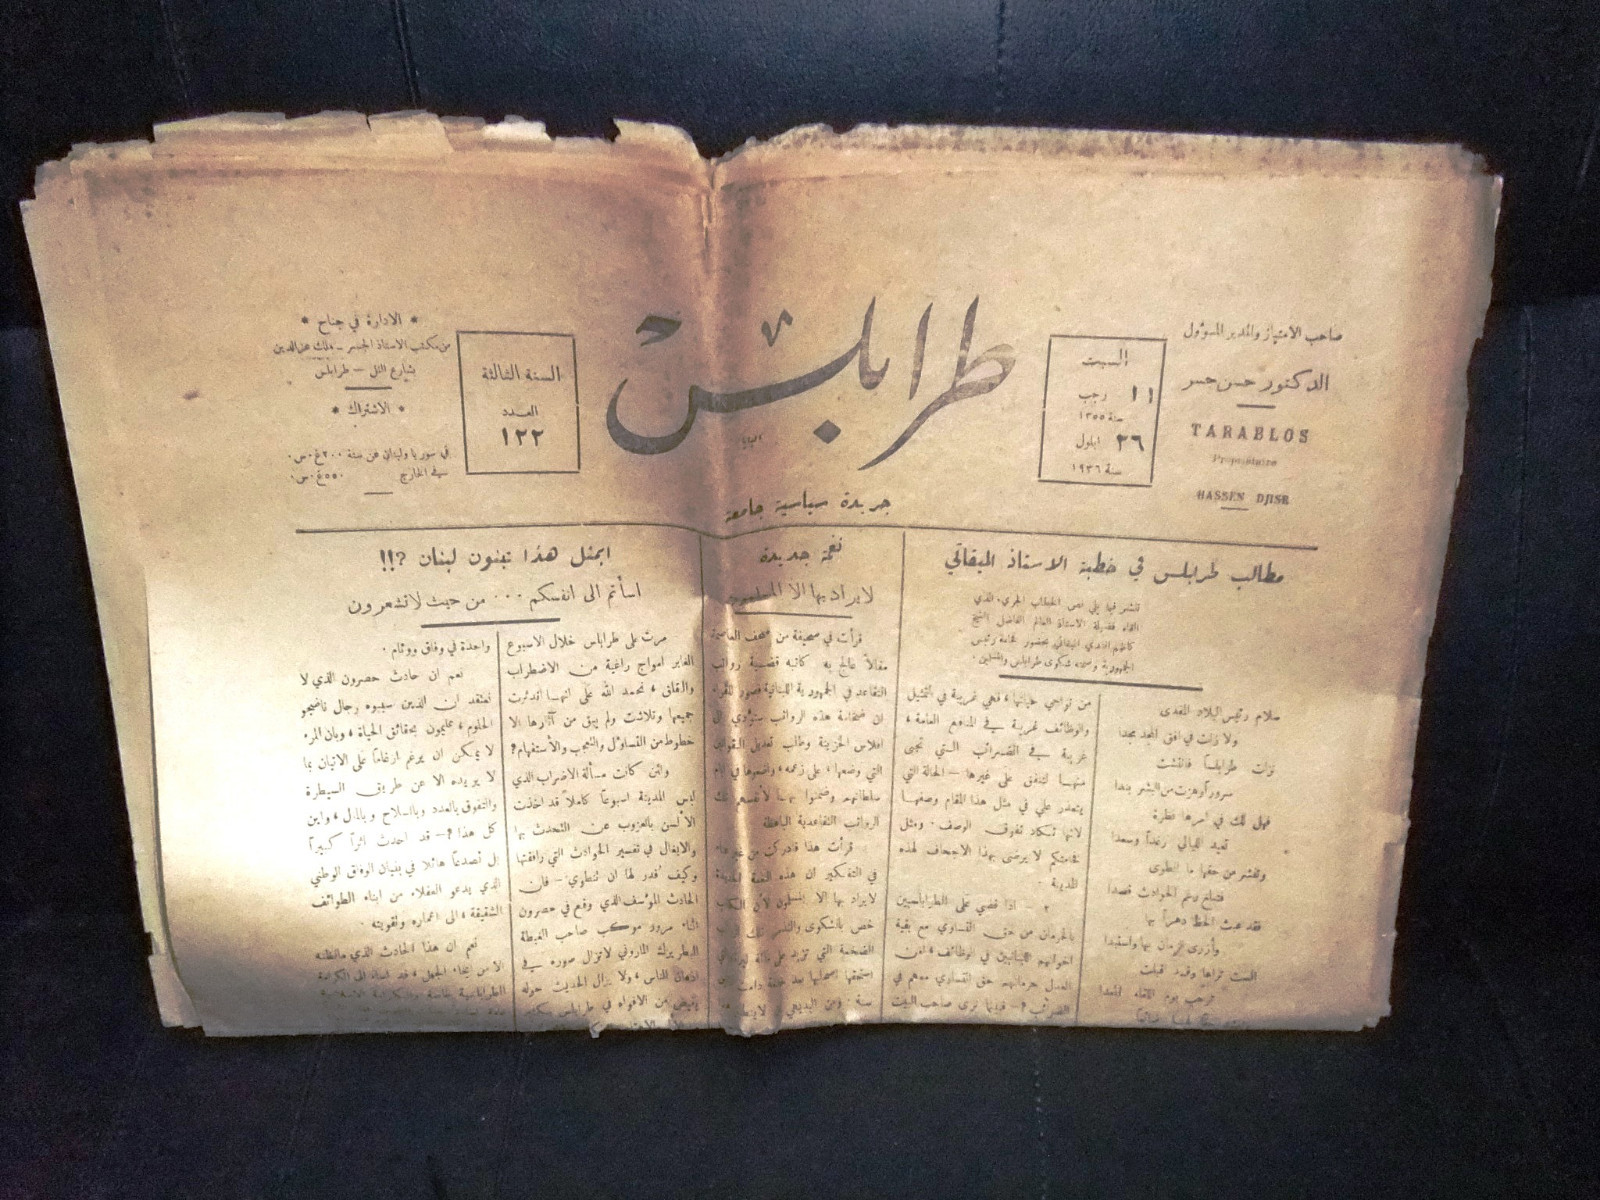 صاحب الامتياز والمدير المسؤول
الدكتور حسن جسر
TARABLOS
Propriétaire
HASSEN DJISR
السبت
١١ رجب
سنة ١٣٥٥
٢٦ ايلول
سنة ١٩٣٦
طرابلس
جريدة سياسية جامعة
السنة الثالثة
العدد
١٢٢
* الادارة في جناح *
من مكتب الاستاذ الجسر ــ ملك عزالدين
بشارع التل ــ طرابلس
* الاشتراك *
في سوريا ولبنان عن سنة ٢٠٠ غ.س.
في الخارج ٥٥٠ غ.س.
مطالب طرابلس في خطبة الاستاذ الميقاتي
ننشر فيما يلي نص الخطاب الجريء الذي
القاه فضيلة الاستاذ العالم الفاضل الشيخ
كاظم افندي الميقاتي بحضور فخامة رئيس
الجمهورية وضمنه شكوى طرابلس
سلام رئيس البلاد المفدى
ولا زلت في افق المجد مجدا
نزلت طرابلساً فانتشت
سروراً وهزت من البشر بندا
فهل لك في امرها نظرة
تعيد الليالي رغداً وسعدا
وتنشر من حقها ما انطوى
فضاع رغم الحوادث قصدا
فقد عبث الحظ دهراً بها
وأزرى الزمان بها واستبدا
الست تراها وقد اقبلت
ترحب يوم اللقاء
من نواحي حياتها، فهي غريبة في التمثيل
والوظائف غريبة في المنافع العامة،
غريبة في الضرائب التي تجبى
منها لتنفق على غيرها ــ الحالة التي
يتعذر علي في مثل هذا المقام وصفها
لانها تكاد تفوق الوصف. ومثل
فخامتكم لا يرضى بهذا الاجحاف لهذه
المدينة.
٢ ــ اذا قضي على الطرابلسيين
بالحرمان من حق التساوي مع بقية
اخوانهم اللبنانيين في الوظائف، فمن
العدل حرمانهم حق التساوي معهم في
الضرائب؟ ــ فاننا نرى صاحب البيت
نغمة جديدة
لا يراد بها الا المسلمون
قرأت في صحيفة من صحف العاصمة
مقالاً عالج به كاتبه قضية رواتب
التقاعد في الجمهورية اللبنانية فصور للقراء
ان ضخامة هذه الرواتب ستؤدي الى
افلاس الخزينة وطلب تعديل القوانين
التي وضعها، على زعمه، واضعوها في ايام
سلطانهم وضمنوا بها لأنفسهم تلك
الرواتب التقاعدية الباهظة
قرأت هذا فادركت من غير
في التفكير ان هذه النغمة الجديدة
لا يراد بها إلا المسلمون لأن الكاتب
خص بالشكوى
الضخمة التي تزيد على مائة ليرة
استحقها اصحابها بعد خدمة دامت
سنة. ومن البديهي
ابمثل هذا تبنون لبنان ؟!!
اسأتم الى انفسكم ... من حيث لا تشعرون
مرت على طرابلس خلال الاسبوع
الغابر امواج راغية من الاضطراب
والقلق، نحمد الله على انها اندثرت
جميعها وتلاشت ولم يبق من آثارها الا
خطوط من التساؤل والتعجب والأستفهام؟
ولئن كانت مسألة الاضراب الذي
لبس المدينة اسبوعاً كاملاً قد اخذت
الألسن بالعزوب عن التحدث بها
والايغال في تفسير الحوادث التي رافقتها
وكيف قدر لها ان تنطوي ــ فان
الحادث المؤسف الذي وقع في حصرون
اثناء مرور موكب صاحب الغبطة
البطريرك الماروني لا تزال صوره في
اذهان الناس، ولا يزال الحديث حوله
يفيض من الافواه في طرابلس
واحدة في وفاق ووئام.
نعم ان حادث حصرون الذي لا
نعتقد ان الذين سببوه رجال ناضجو
الحلوم، عليمون بحقائق الحياة، وبان المرء
لا يمكن ان يرغم ارغاماً على الاتيان بما
لا يريده الا عن طريق السيطرة
والتفوق بالعدد وبالسلاح وبالمال، واين
كل هذا؟ ــ قد احدث اثراً كبيراً
بل تصدعاً هائلا في بنيان الوفاق الوطني
الذي يدعو العقلاء من ابناء الطوائف
الشقيقة، الى اعماره وتقويته.
نعم ان هذا الحادث الذي ما نظنه
الا من ايحاء الجهل، قد اساء الى الكرامة
الطرابلسية خاصة والكرامة